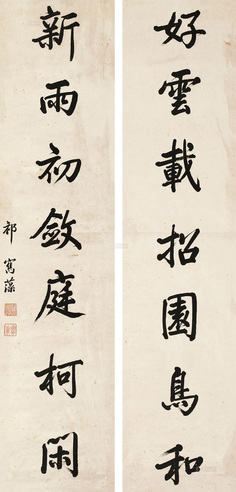 好雲載招園鳥和
新雨初斂庭柯閑
祁寯藻